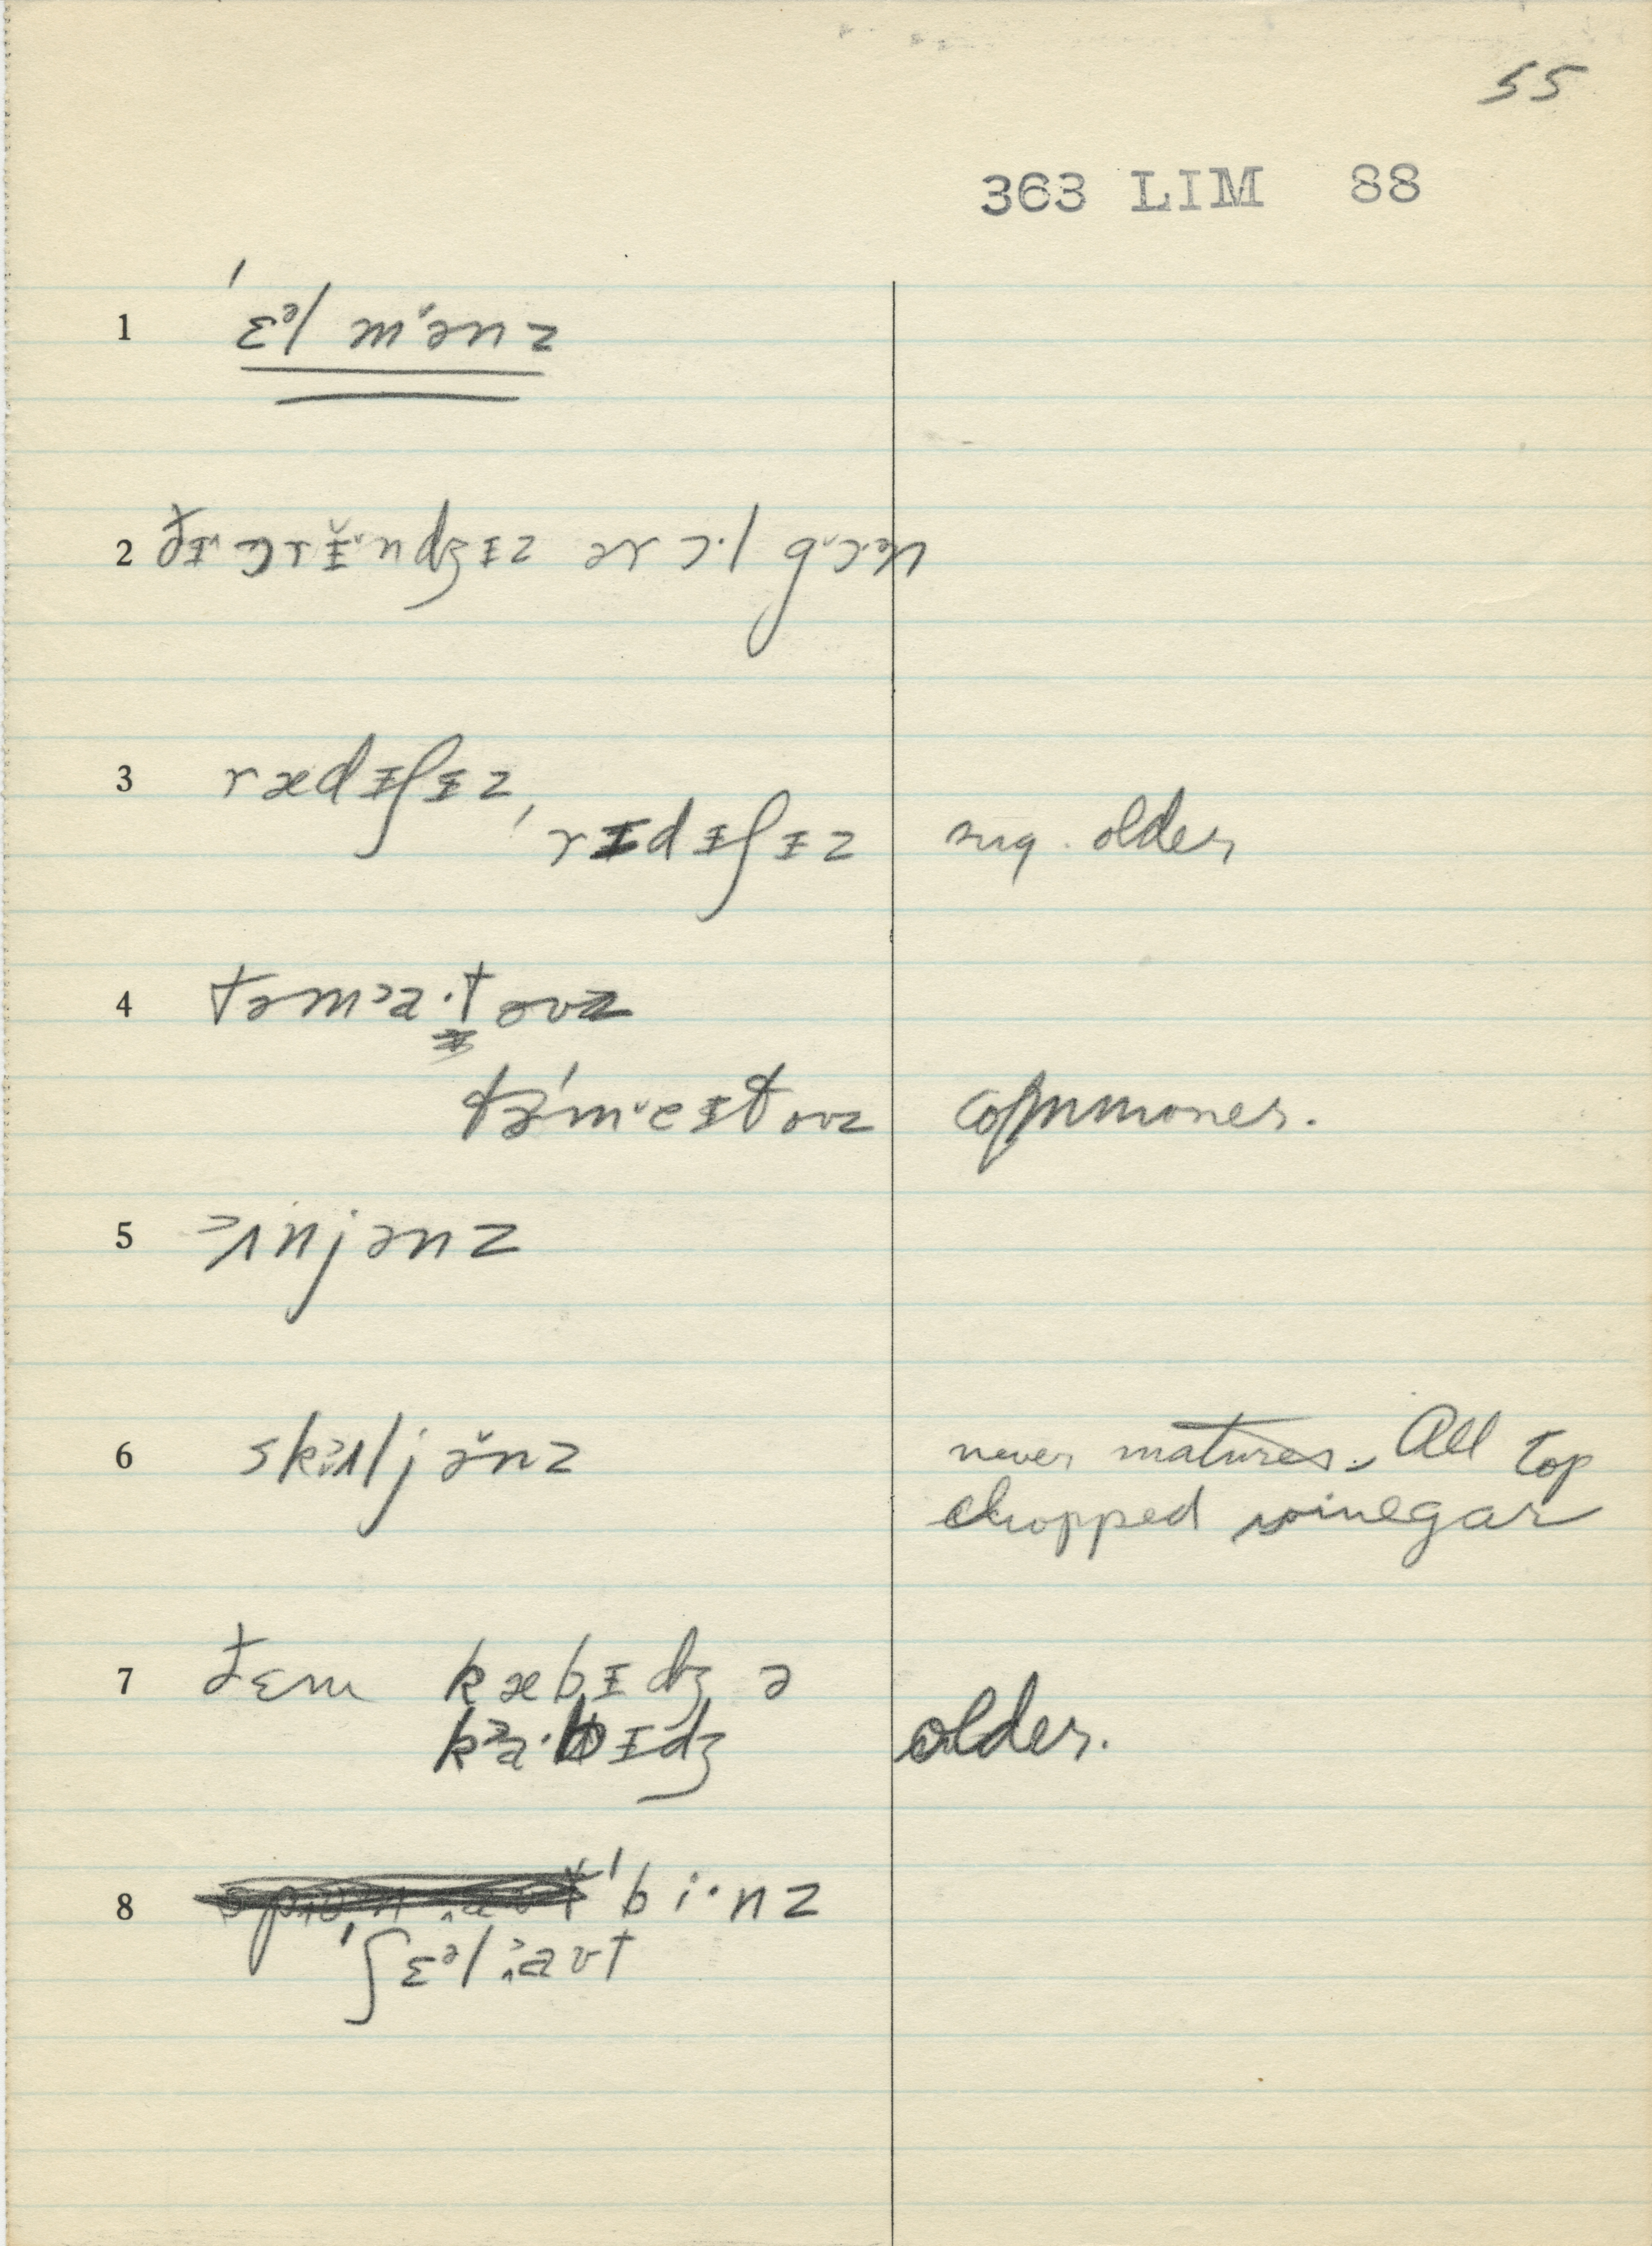 55
363 LIM 88
1 ˈɛᵊl mˈənz
2 ðɪ ɔrɪ̆ndʒɪz ər ɔ·l gɔᵊn
3 rædɪʃɪz,
ˈrɪdɪʃɪz sug. older
4 təmᵓa·təʊz
təˈmeɪtəʊz commoner.
5 ʌnjənz
6 skʌljə̆nz never matures. All top
chopped vinegar
7 ðɛm kæbɪdʒ ə
kᵓa·bɪdʒ older.
8 ˈbi·nz
ˈʃɛᵊl aʊt